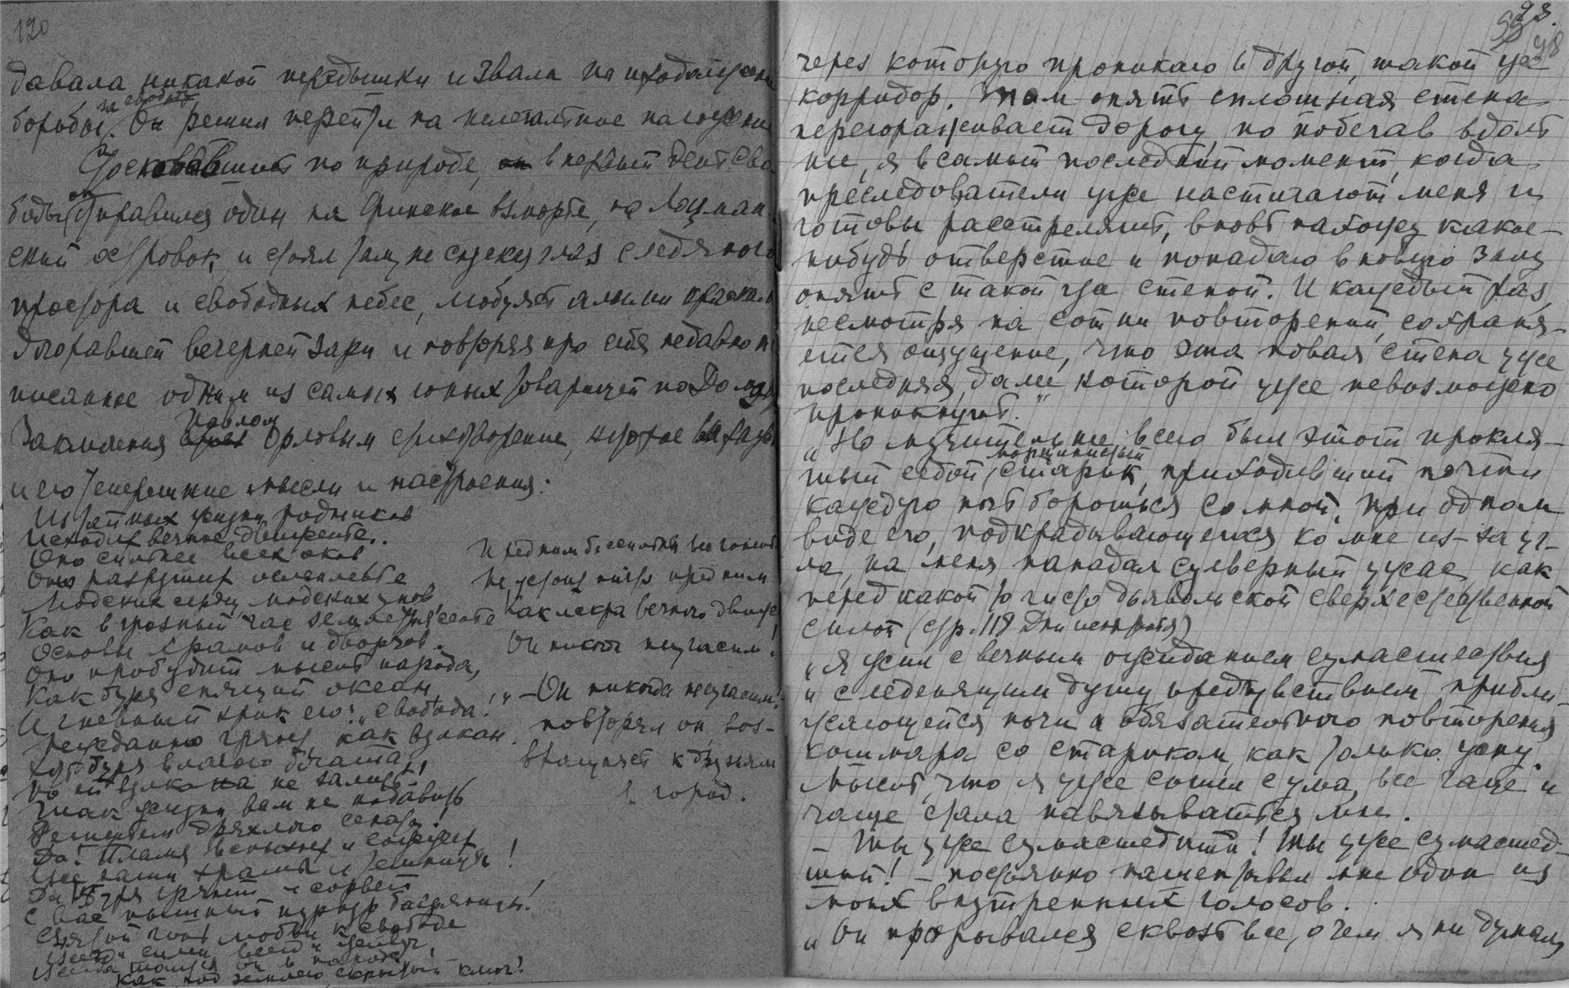 120
давала никакой передышки и звала на продолжение
борьбы за свободу. Он решил перейти на нелегальное положение
Стосковавшись по природе, в первый день сво
боды отправился один на финское взморье, на Лоцман
ский островок, и стоял там, не спуская глаз с ледяного
простора и свободных небес, любуясь алыми красками
догоравшей вечерней зари и повторяя про себя недавно на
писанное одним из самых юных товарищей по Дому
Заключения Павлом Орловым стихотворение, которое
и его теперешние мысли и настроения:
Из тайных жизни родников
Исходит вечное движенье..
Оно сильнее всех оков
Оно разрушит ослепленье
Людских сердец, людских умов
Как в грозный час землетрясенье
Основы храмов и дворцов.
Оно пробудит мысль народа,
Как буря спящий океан,
И гневный крик его: „свобода!"
Нежданно грянет, как вулкан
но ей вулкана не залить!
Знак жизни вам не подавить
Решеньем дряхлого сената!
Да! Пламя вспыхнет и сожжет
Все ваши храмы и темницы!
Да! Буря грянет и сорвет
С вас пышный пурпур багряницы!
Святой глас любви к свободе
Всегда силен, всегда живуч,
Всегда таился он в народе,
Как под землею скрытый ключ!
И пред ним бессильны
Не устоит ничто пред ним
Как искра вечного движенья
Он никогда неугасим!
„— Он никогда неугасим!
повторял он воз-
вращаясь к друзьям
в город.
98
через которую проникаю в другой, такой же
корридор. Там опять сплошная стена
перегораживает дорогу, но побегав вдоль
нее, я в самый последний момент, когда
преследователи уже настигают меня и
готовы расстрелять, вновь нахожу какое-
нибудь отверстие и попадаю в новую залу
опять с такой же стеной. И каждый раз,
несмотря на сотни повторений, сохраня-
ется ощущение, что эта новая стена уже
последняя, далее которой уже невозможно
проникнуть."
„Но мучительнее всего был этот прокля-
тый седой морщинистый старик, приходивший почти
каждую ночь бороться со мной. При одном
виде его, подкрадывающегося ко мне из-за уг-
ла, на меня нападал суеверный ужас, как
перед какой то чисто дьявольской сверхестественной
силой (стр. 118
„Я жил с вечным ожиданием сумасшествия
и с леденящим душу предчувствием прибли
жающейся ночи и обязательного повторения
кошмара со стариком как только усну.
Мысль, что я уже сошел с ума, все чаще и
чаще стала навязываться мне.
– Ты уже сумасшедший! Ты уже сумасшед-
ший! – постоянно нашептывал мне один из
моих внутренних голосов.
„Он прорывался сквозь все, о чем я ни думал,